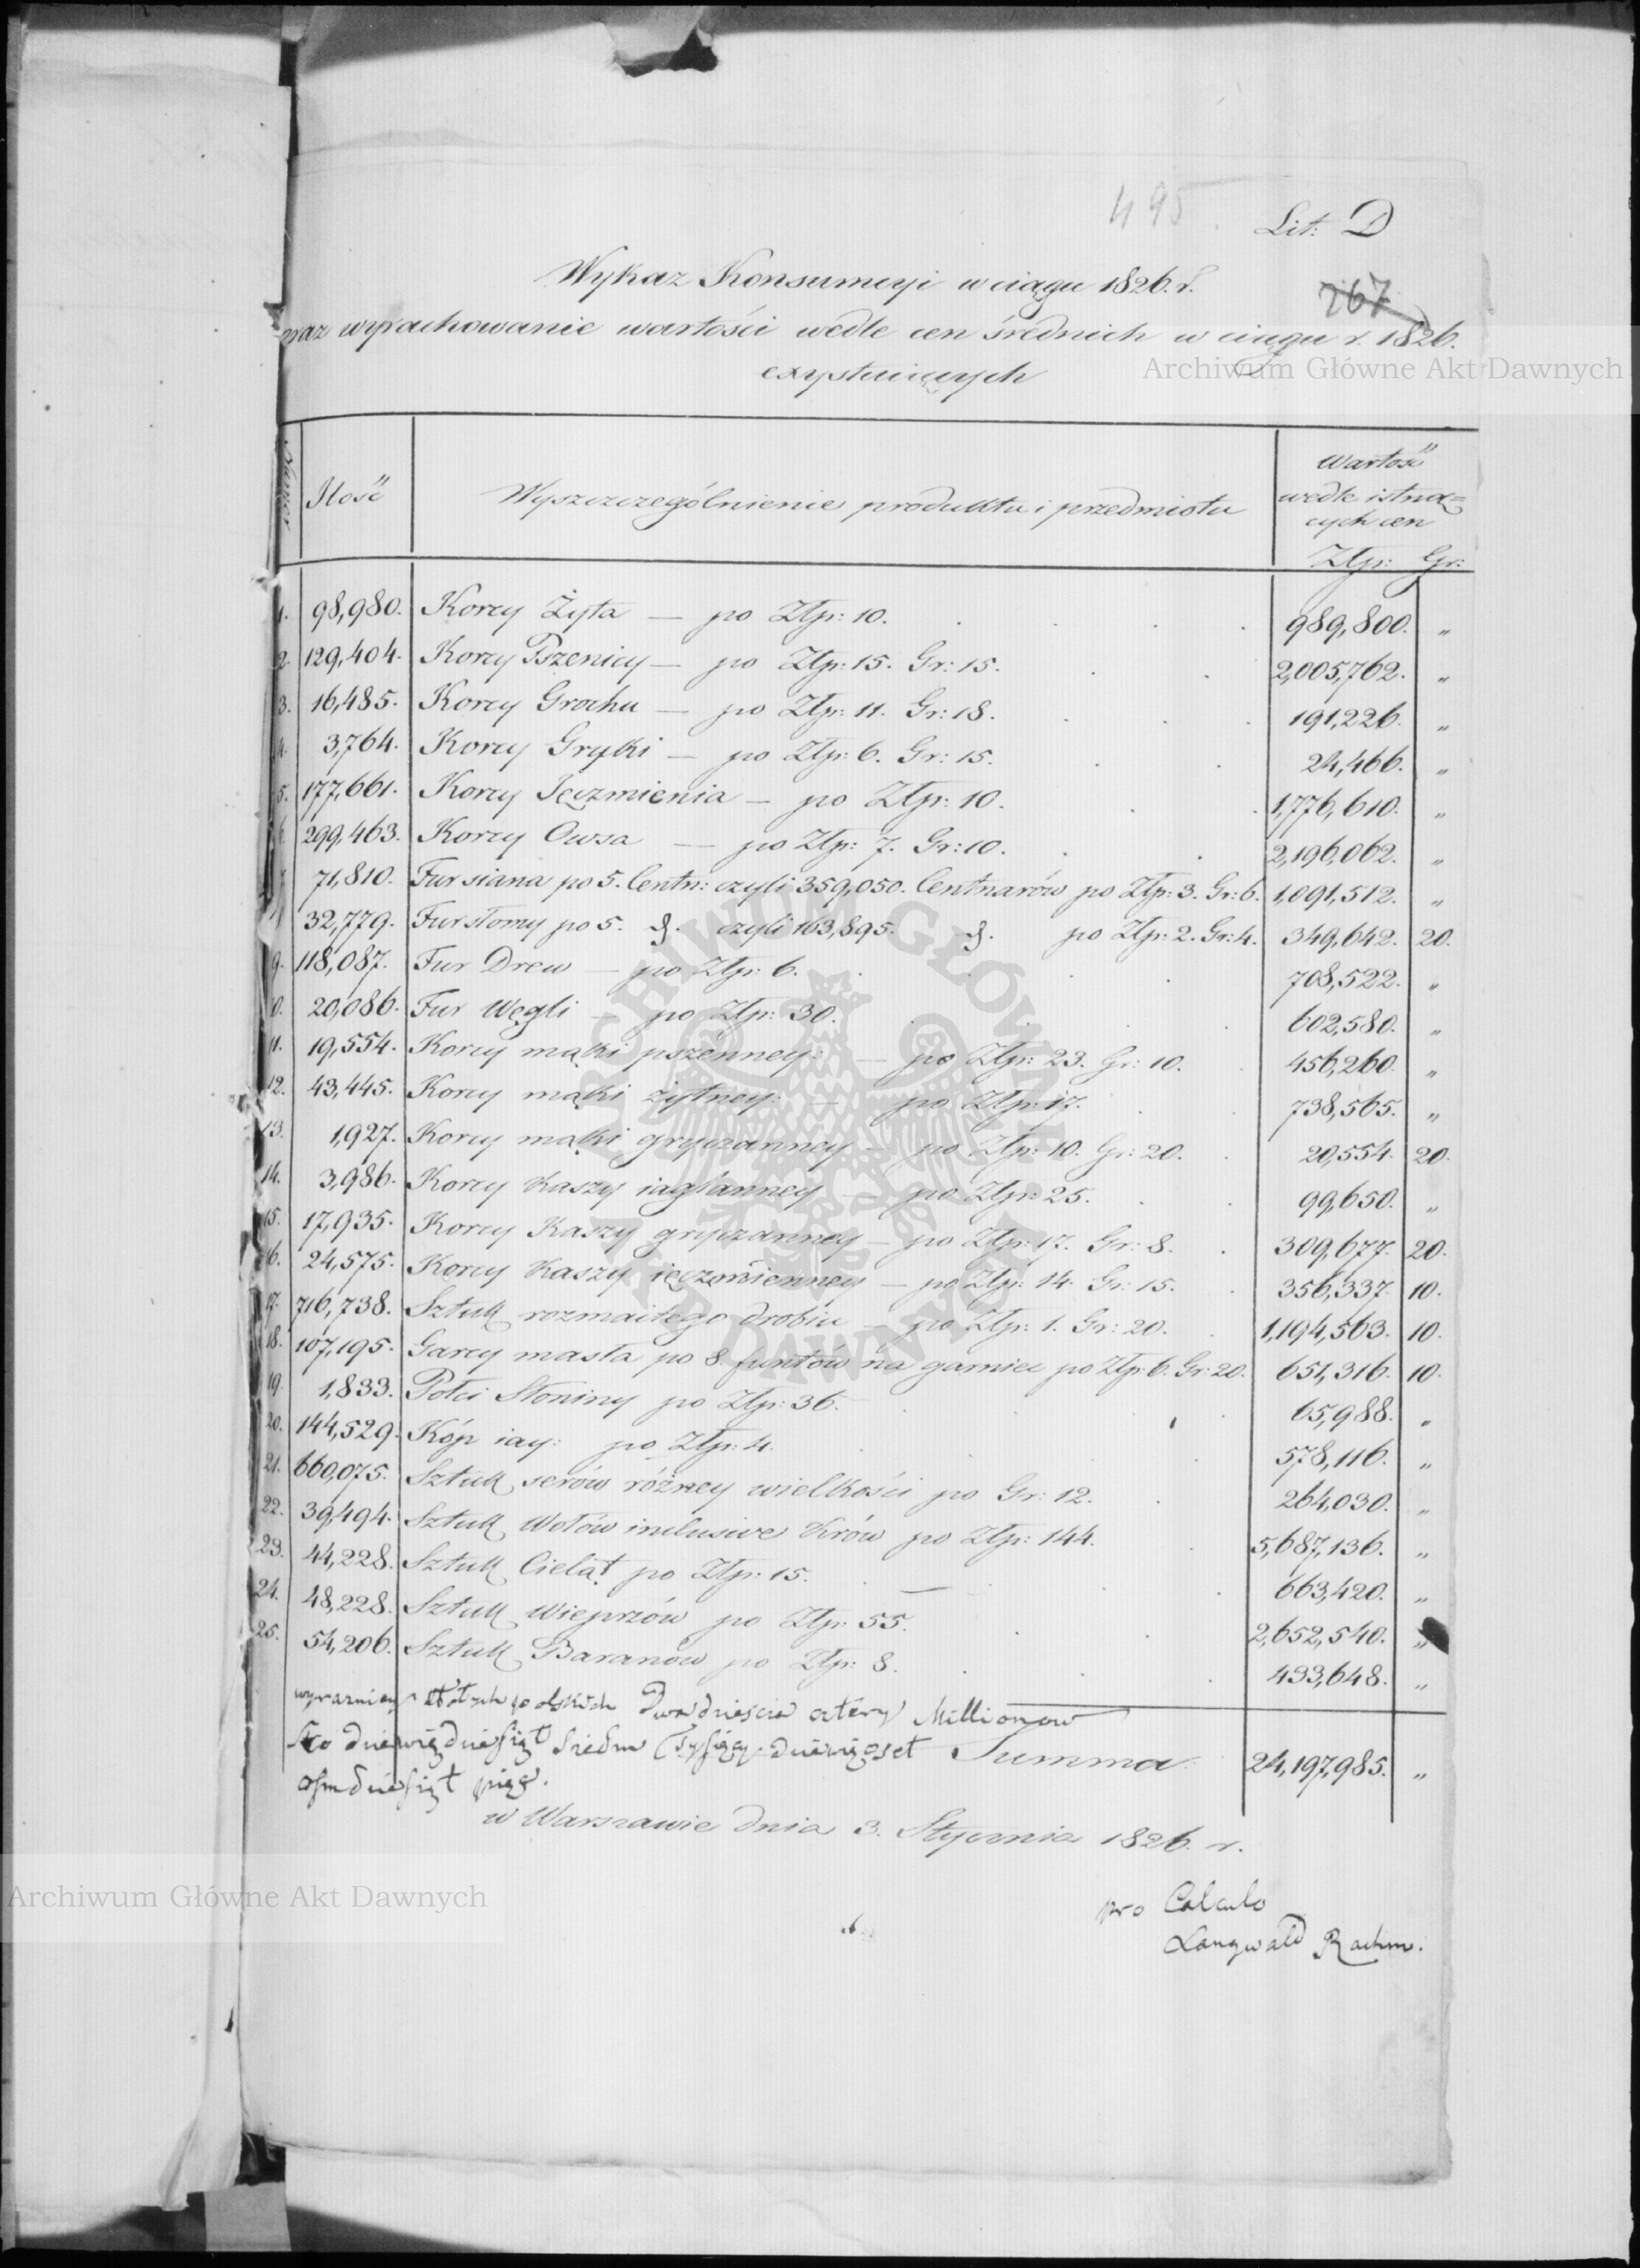 495.
Lit: D
Wykaz Konsumcyi w ciągu 1826. r.
267
oraz wyrachowanie wartości wedle cen średnich w ciągu r. 1826.
exystuiących
Archiwum Główne Akt Dawnych
Numer Ilość Wyszczczególnienie produktu i przedmiotu Wartość wedle istną=cych cen
Złp: Gr:
1. 98,980. Korcy Żyta — po Złp: 10. 989,800. „
2. 129,404. Korcy Pszenicy — po Złp: 15. Gr: 15. 2,005,762. „
3. 16,485. Korcy Grochu — po Złp: 11. Gr: 18. 191,226. „
4. 3,764. Korcy Gryki — po Złp: 6. Gr: 15. 24,466. „
5. 177,661. Korcy Jęczmienia — po Złp: 10. 1,776,610. „
6. 299,463. Korcy Owsa — po Złp: 7. Gr: 10. 2,196,062. „
7. 71,810. Fur siana po 5. Centn: czyli 359,050. Centnarów po Złp: 3. Gr: 6. 1,091,512. „
8. 32,779. Fur słomy po 5. d. czyli 163,895. d. po Złp: 2. Gr: 4. 349,642. 20.
9. 118,087. Fur Drew — po Złp: 6. 708,522. „
10. 20,086. Fur Węgli — po Złp: 30. 602,580. „
11. 19,554. Korcy mąki pszenney: — po Złp: 23. Gr: 10. 456,260. „
12. 43,445. Korcy mąki żytney: — po Złp: 17. 738,565. „
13. 1,927. Korcy mąki gryczanney — po Złp: 10. Gr: 20. 20,554. 20.
14. 3,986. Korcy Kaszy iaglanney — po Złp: 25. 99,650. „
15. 17,935. Korcy Kaszy gryczanney — po Złp: 17. Gr: 8. 309,677. 20.
16. 24,575. Korcy Kaszy ięczmienney — po Złp: 14. Gr: 15. 356,337. 10.
17. 716,738. Sztuk rozmaitego drobiu — po Złp: 1. Gr: 20. 1,194,563. 10.
18. 107,195. Garcy masła po 8. funtów na garniec po Złp: 6. Gr: 20. 651,316. 10.
19. 1,833. Połci Słoniny po Złp: 36. 65,988. „
20. 144,529. Kóp iay: po Złp: 4. 578,116. „
21. 660,075. Sztuk serów różney wielkości po Gr: 12. 264,030. „
22. 39,494. Sztuk Wołów inclusive Krów po Złp: 144. 5,687,136. „
23. 44,228. Sztuk Cieląt po Złp: 15. 663,420. „
24. 48,228. Sztuk Wieprzów po Złp: 55. 2,652,540. „
25. 54,206. Sztuk Baranów po Złp: 8. 433,648. „
wyraźniey złotych polskich Dwadzieścia cztery Millionow
sto dziewięćdziesiąt siedm Tysięcy dziewięćset Summa 24,197,985. „
ośmdziesiąt pięć.
w Warszawie dnia 3. Stycznia 1826. r.
Archiwum Główne Akt Dawnych
pro Calculo
Langwald Rachm.
ARCHIWUM GŁÓWNE AKT DAWNYCH